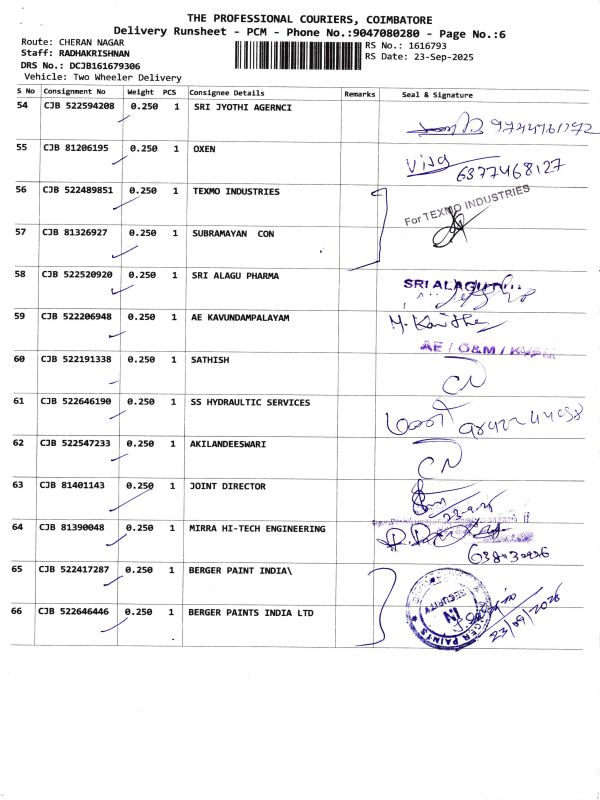 THE PROFESSIONAL COURIERS, COIMBATORE
Delivery Runsheet - PCM - Phone No.:9047080280 - Page No.:6
Route: CHERAN NAGAR
RS No.: 1616793
Staff: RADHAKRISHNAN
RS Date: 23-Sep-2025
DRS No.: DCJB161679306
Vehicle: Two Wheeler Delivery
S No Consignment No Weight PCS Consignee Details Remarks Seal & Signature
54 CJB 522594208 0.250 1 SRI JYOTHI AGERNCI
55 CJB 81206195 0.250 1 OXEN 6377468127
56 CJB 522489851 0.250 1 TEXMO INDUSTRIES For TEXMO INDUSTRIES
57 CJB 81326927 0.250 1 SUBRAMAYAN CON
58 CJB 522520920 0.250 1 SRI ALAGU PHARMA SRI ALAGU
59 CJB 522206948 0.250 1 AE KAVUNDAMPALAYAM
AE / O&M /
60 CJB 522191338 0.250 1 SATHISH CN
61 CJB 522646190 0.250 1 SS HYDRAULTIC SERVICES
62 CJB 522547233 0.250 1 AKILANDEESWARI CN
63 CJB 81401143 0.250 1 JOINT DIRECTOR
64 CJB 81390048 0.250 1 MIRRA HI-TECH ENGINEERING
65 CJB 522417287 0.250 1 BERGER PAINT INDIA\
66 CJB 522646446 0.250 1 BERGER PAINTS INDIA LTD
SECURITY
IN